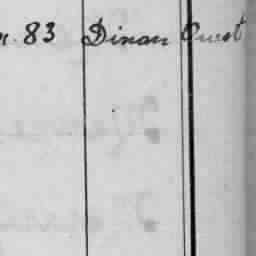 83 Dinan Ouest